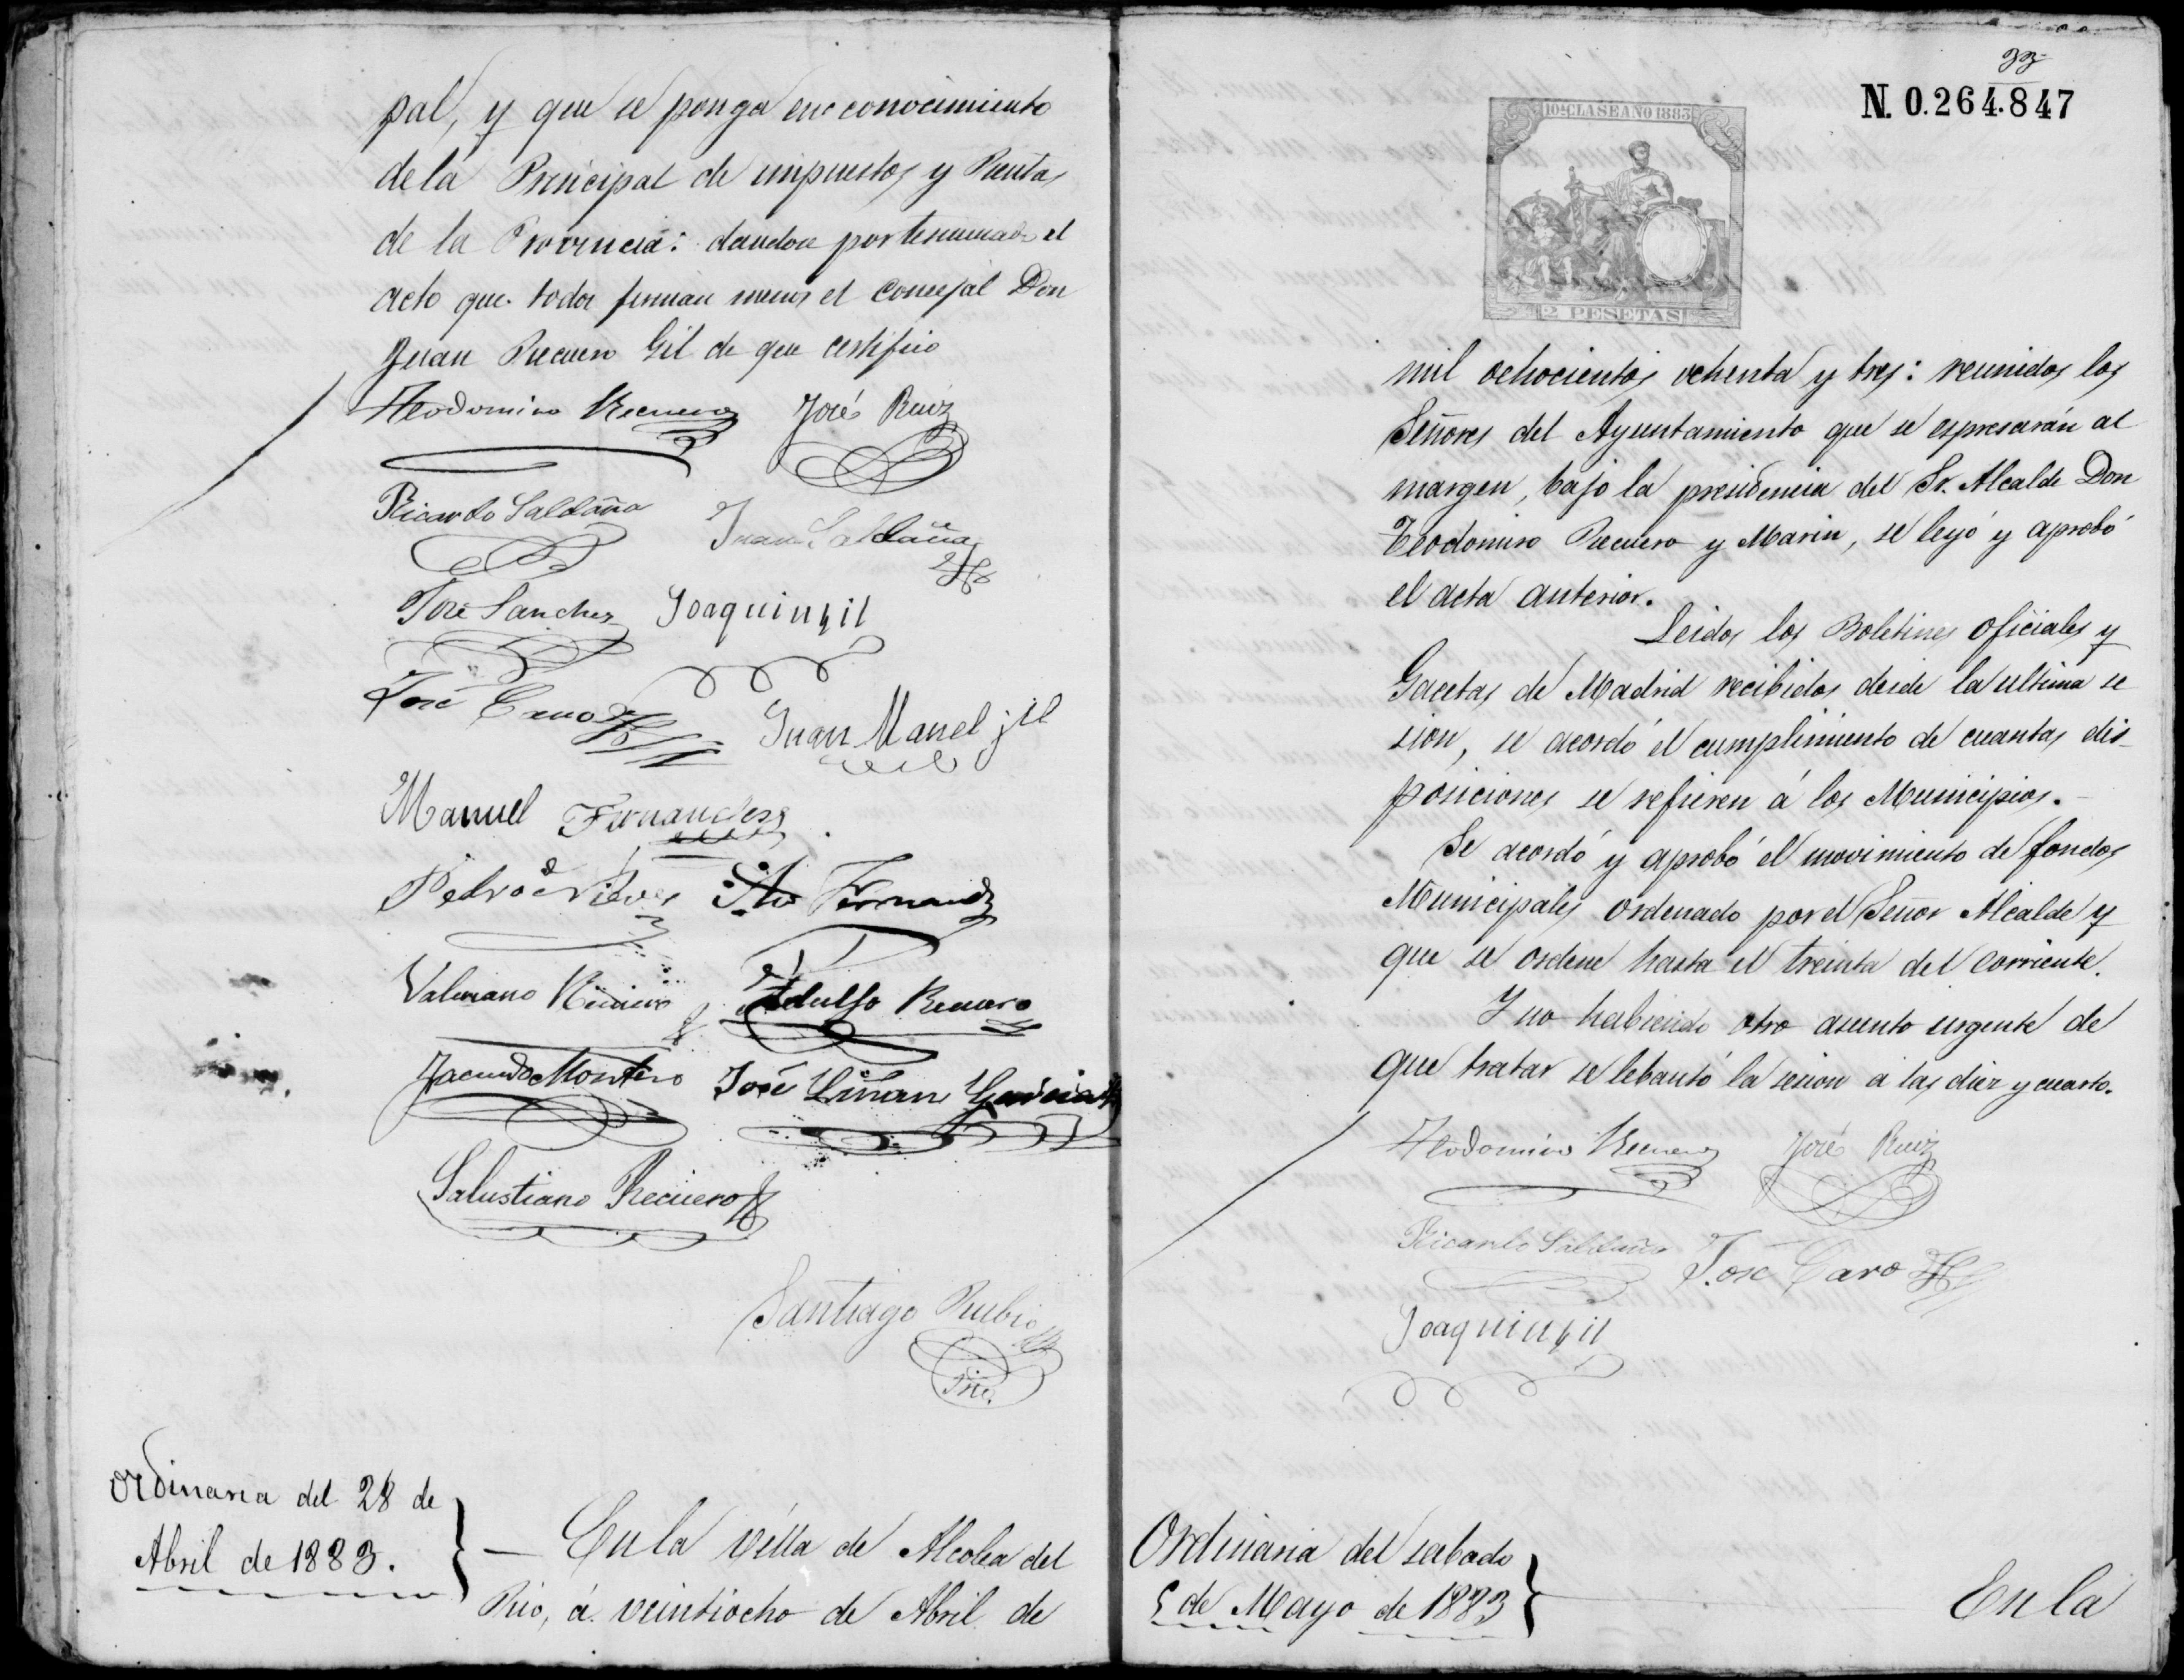 pal, y que se ponga en conocimiento
dela Principal de impuestos y Rentas
de la Provincia: dandose por terminado el
acto que todos firman menos el concejal Don
Juan Recuero Gil de que certifico
Teodomiro Recuero José Ruiz
Ricardo Saldaña Juan Saldaña
José Sanchez Joaquin gil
José Caro Juan Manel jil
Manuel Fernandez
Pedro Nieves Fernandz
Valeriano Recuero Adulfo Recuero
Facundo Montero José Liñan Garcia
Salustiano Recuero
Santiago Rubio
Srio.
Ordinaria del 28 de
Abril de 1883.
En la villa de Alcolea del
Rio, á veintiocho de Abril de
N. 0.264.847
10ª CLASE AÑO 1883
2 PESETAS
mil ochocientos ochenta y tres: reunidos los
Señores del Ayuntamiento que se espresarán al
margen, bajo la presidencia del Sr. Alcalde Don
Teodomiro Recuero y Marin, se leyó y aprobó
el acta anterior.
Leidos los Boletines oficiales y
Gacetas de Madrid recibidos desde la ultima se
sion, se acordó el cumplimiento de cuantas dis-
posiciones se refieren á los Municipios.-
Se acordó y aprobó el movimiento de fondos
Municipales ordenado por el Señor Alcalde y
que se ordene hasta el treinta del corriente.
Y no habiendo otro asunto urgente de
que tratar se lebantó la sesion a las diez y cuarto.
Teodomiro Recuero José Ruiz
Ricardo Saldaña José Caro
Joaquin gil
Ordinaria del sabado
5 de Mayo de 1883
En la